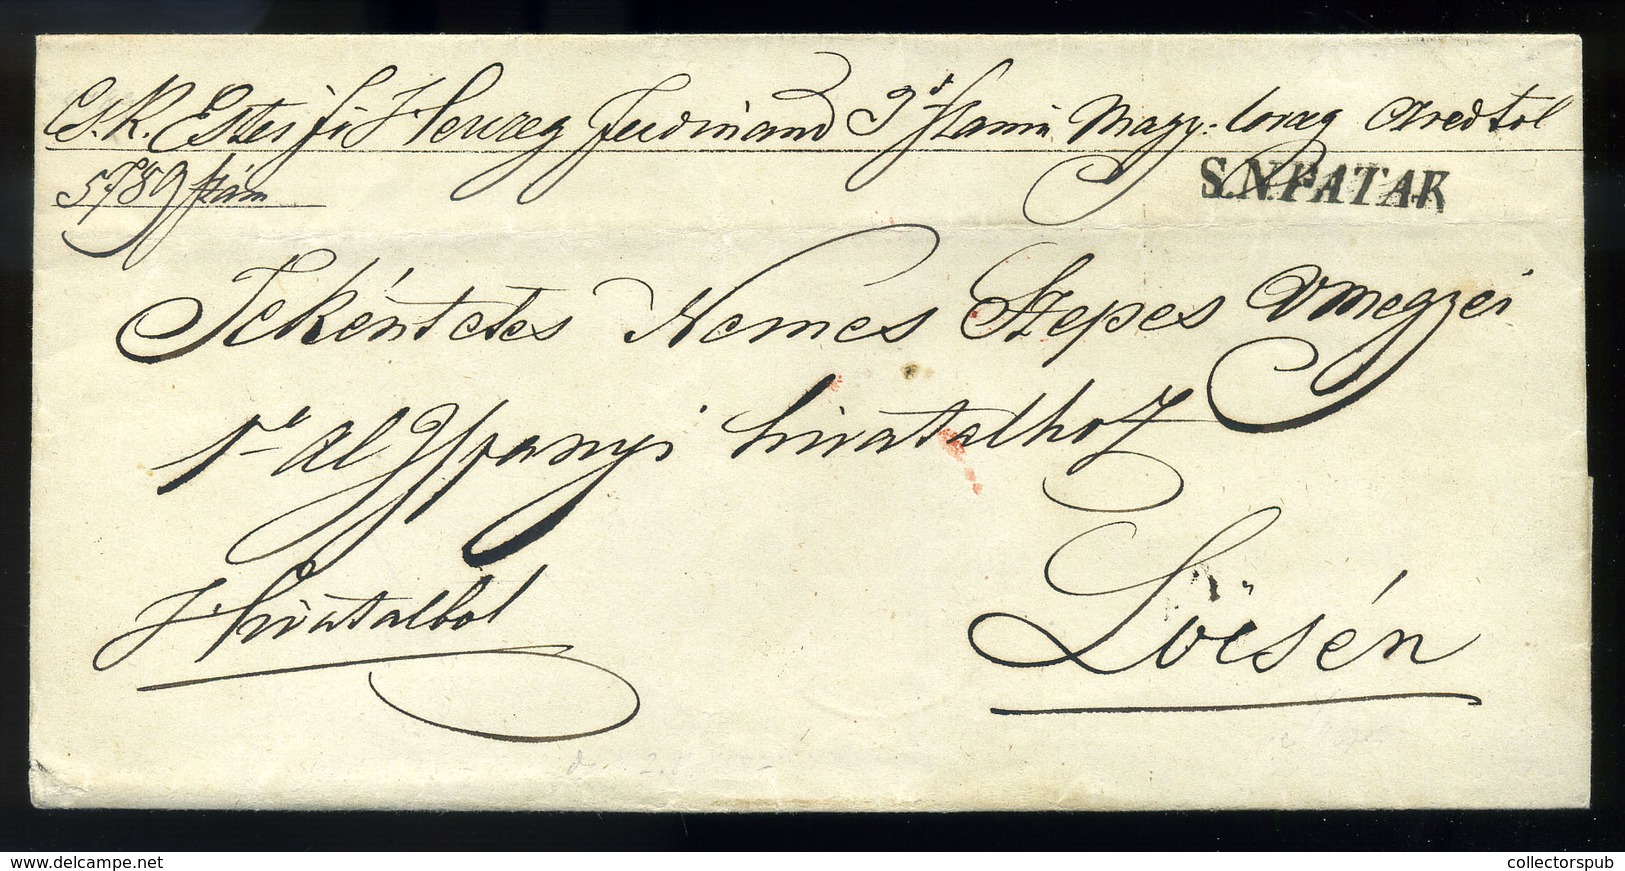 Cs. K. Estei fő Herczeg Ferdinand 3ik számú Magy: lovag Ezredtöl
S.N.PATAK
5789 szám
Tekéntetes Nemes Szepes Vmegyei
1ső Al Ispanyi hivatalhoz
Hivatalból
Lőcsén
www.delcampe.net
collectorspub